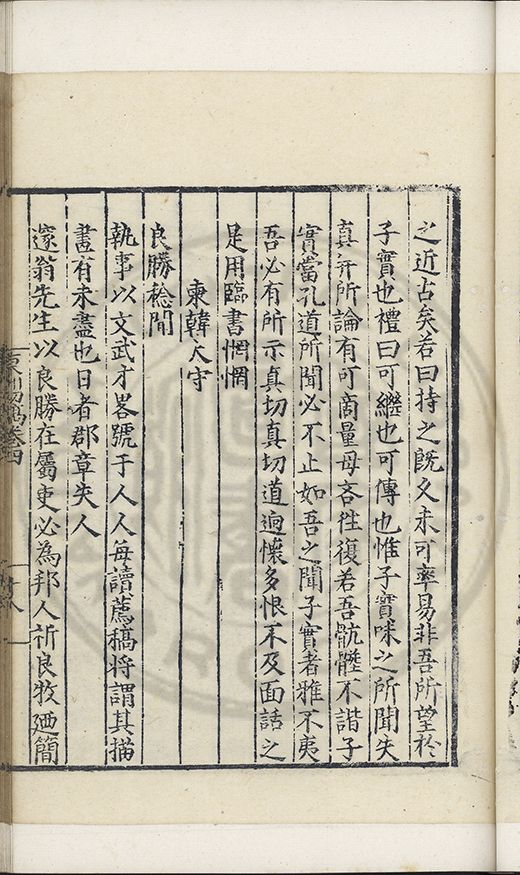 之近古矣若曰持之既久未可率易非吾所望於
子實也禮曰可繼也可傳也惟子實味之所聞失
真并所論有可商量毋吝徃復若吾骯髒不諧子
實當孔道所聞必不止如吾之聞子實者雅不夷
吾必有所示真切真切道逈懷多恨不及面話之
是用臨書惘惘
柬韓太守
良勝稔聞
執事以文武才畧號于人人每讀薦稿将謂其描
畫有未盡也日者郡章失人
邃翁先生以良勝在屬吏必為邦人祈良牧廼簡
東川初稿卷四